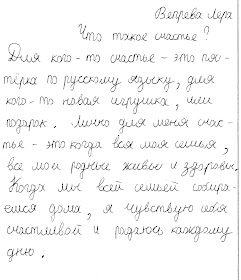 Вепрева Лера
Что такое счастье?
Для кого-то счастье - это пя-
тёрка по русскому языку, для
кого-то новая игрушка, или
подарок. Лично для меня счас-
тье - это когда вся моя семья,
все мои родные живы и здоровы.
Когда мы всей семьей собира-
емся дома, я чувствую себя
счастливой и радаюсь каждому
дню.